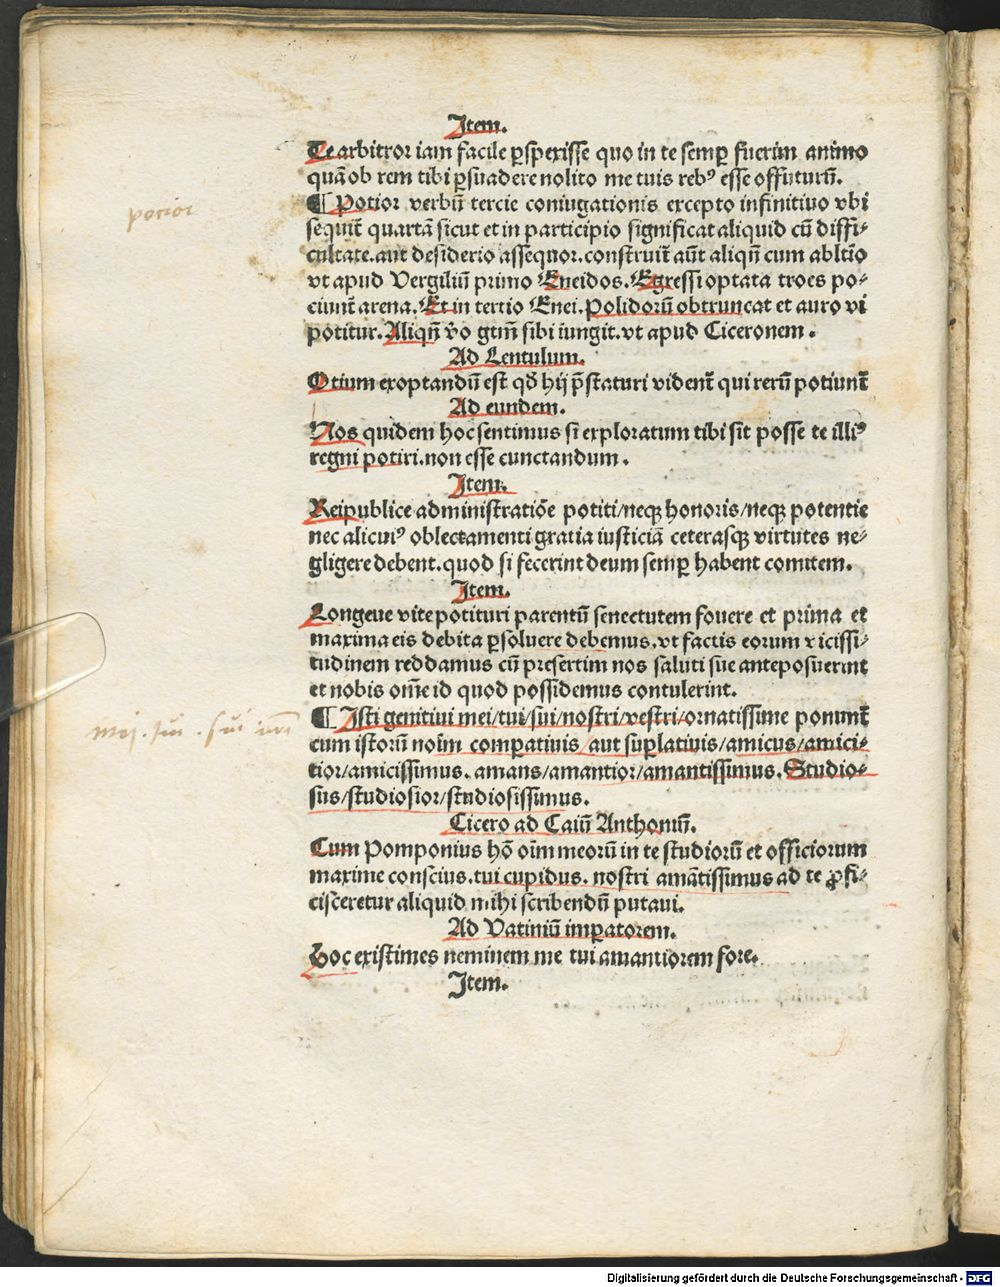 Item.
Te arbitror iam facile ꝑspexisse quo in te semꝑ fuerim animo
quā ob rem tibi ꝑsuadere nolito me tuis rebꝰ esse offuturū.
potior
¶ Potior verbū tercie coniugationis excepto infinitiuo vbi
sequit̄ quartā sicut et in participio significat aliquid cū diffi⸗
cultate.aut desiderio assequor.construit̄ aūt aliqn̄ cum abltīo
vt apud Vergiliū primo Eneidos. Egressi optata troes po⸗
ciunt̄ arena. Et in tertio Enei. Polidorū obtruncat et auro vi
potitur. Aliqn̄ v̄o gtm̄ sibi iungit.vt apud Ciceronem.
Ad Lentulum.
Otium exoptandū est qd̄ hij p̄staturi vident̄ qui rerū potiunt̄
Ad eundem.
Nos quidem hoc sentimus si exploratum tibi sit posse te illiꝰ
regni potiri.non esse cunctandum.
Item.
Reipublice administratiōe potiti/neqꝫ honoris/neqꝫ potentie
nec alicuiꝰ oblectamenti gratia iusticiā ceterasqꝫ virtutes ne⸗
gligere debent.quod si fecerint deum semꝑ habent comitem.
Item.
Longeue vite potituri parentū senectutem fouere et prima et
maxima eis debita ꝑsoluere debemus.vt factis eorum vicissi⸗
tudinem reddamus cū presertim nos saluti sue anteposuerint
et nobis om̄e id quod possidemus contulerint.
mei. tui. sui
¶ Isti genitiui mei/tui/sui/nostri/vestri/ornatissime ponunt̄
cum istorū noīm comꝑatiuis/aut suꝑlatiuis/amicus/amici⸗
tior/amicissimus. amans/amantior/amantissimus. Studio⸗
sus/studiosior/studiosissimus.
Cicero ad Caiū Anthoniū.
Cum Pomponius hō oīm meorū in te studiorū et officiorum
maxime conscius.tui cupidus. nostri amātissimus ad te ꝓfi⸗
cisceretur aliquid mihi scribendū putaui.
Ad Vatiniū imꝑatorem.
Hoc existimes neminem me tui amantiorem fore.
Item.
Digitalisierung gefördert durch die Deutsche Forschungsgemeinschaft - DFG